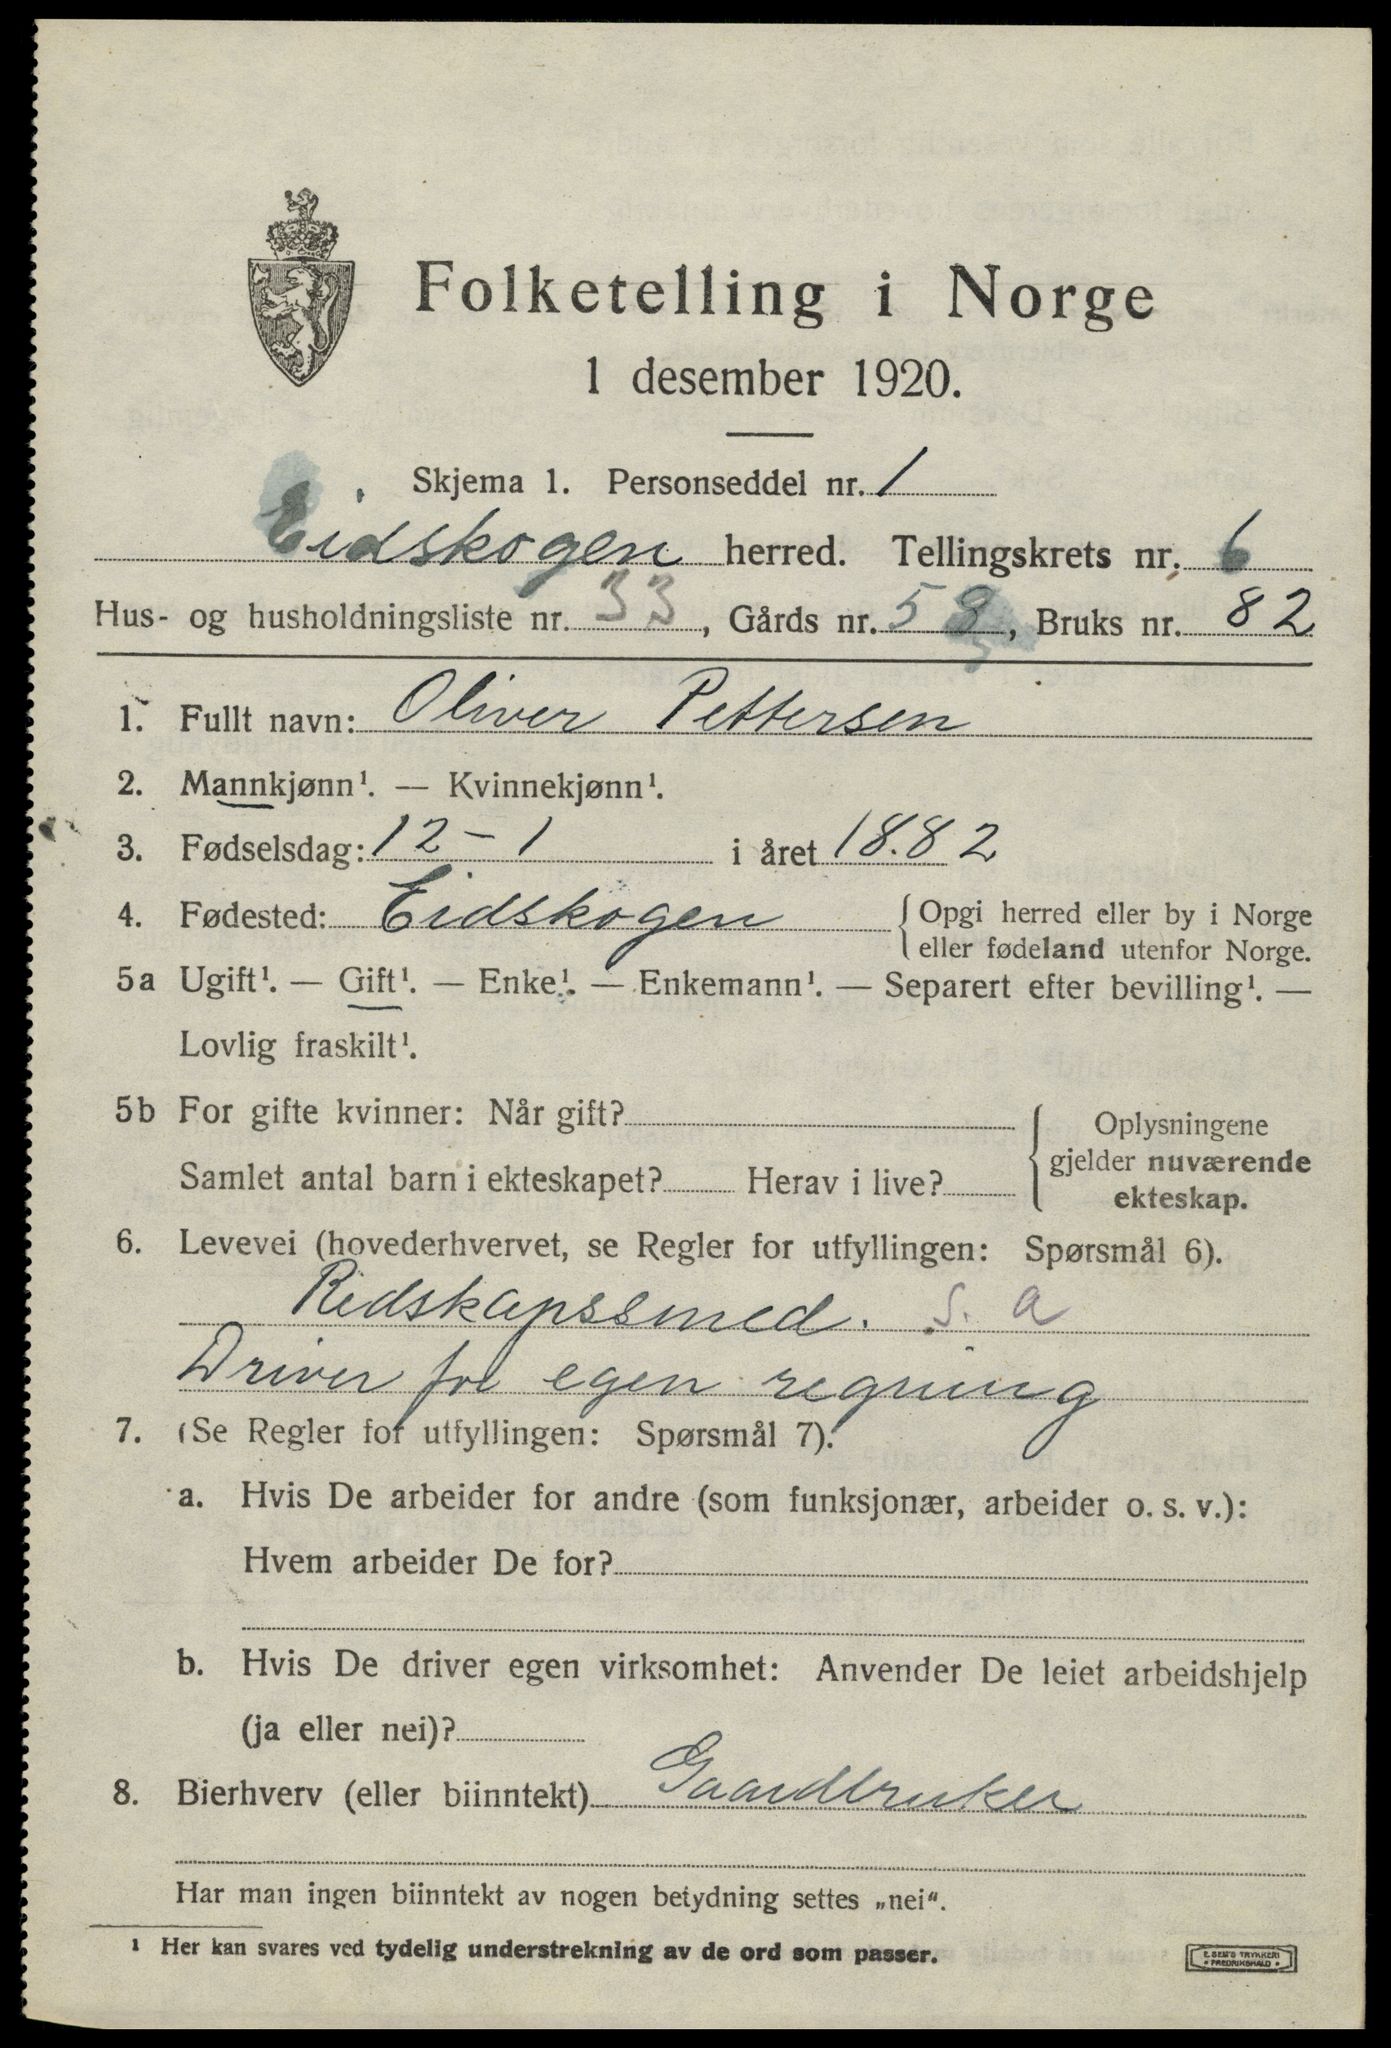 Folketelling i Norge
1 desember 1920.
Skjema 1. Personseddel nr. 1
Eidskogen herred. Tellingskrets nr. 6
Hus- og husholdningsliste nr. 33, Gårds nr. 58, Bruks nr. 82
1. Fullt navn: Oliver Pettersen
2. Mannkjønn¹. — Kvinnekjønn¹.
3. Fødselsdag: 12-1 i året 1882
4. Fødested: Eidskogen {Opgi herred eller by i Norge
eller fødeland utenfor Norge.
5a Ugift¹. — Gift¹. — Enke¹. — Enkemann¹. — Separert efter bevilling¹. —
Lovlig fraskilt¹.
5b For gifte kvinner: Når gift? Oplysningene
gjelder nuværende
Samlet antal barn i ekteskapet? Herav i live?
ekteskap.
6. Levevei (hovederhvervet, se Regler for utfyllingen: Spørsmål 6).
Redskapssmed. S. a
Driver for egen regning
7. (Se Regler for utfyllingen: Spørsmål 7).
a. Hvis De arbeider for andre (som funksjonær, arbeider o. s. v.):
Hvem arbeider De for?
b. Hvis De driver egen virksomhet: Anvender De leiet arbeidshjelp
(ja eller nei)?
8. Bierhverv (eller biinntekt) Gaardbruker
Har man ingen biinntekt av nogen betydning settes „nei“.
¹ Her kan svares ved tydelig understrekning av de ord som passer.
E. SEM'S TRYKKERI
FREDRIKSHALD